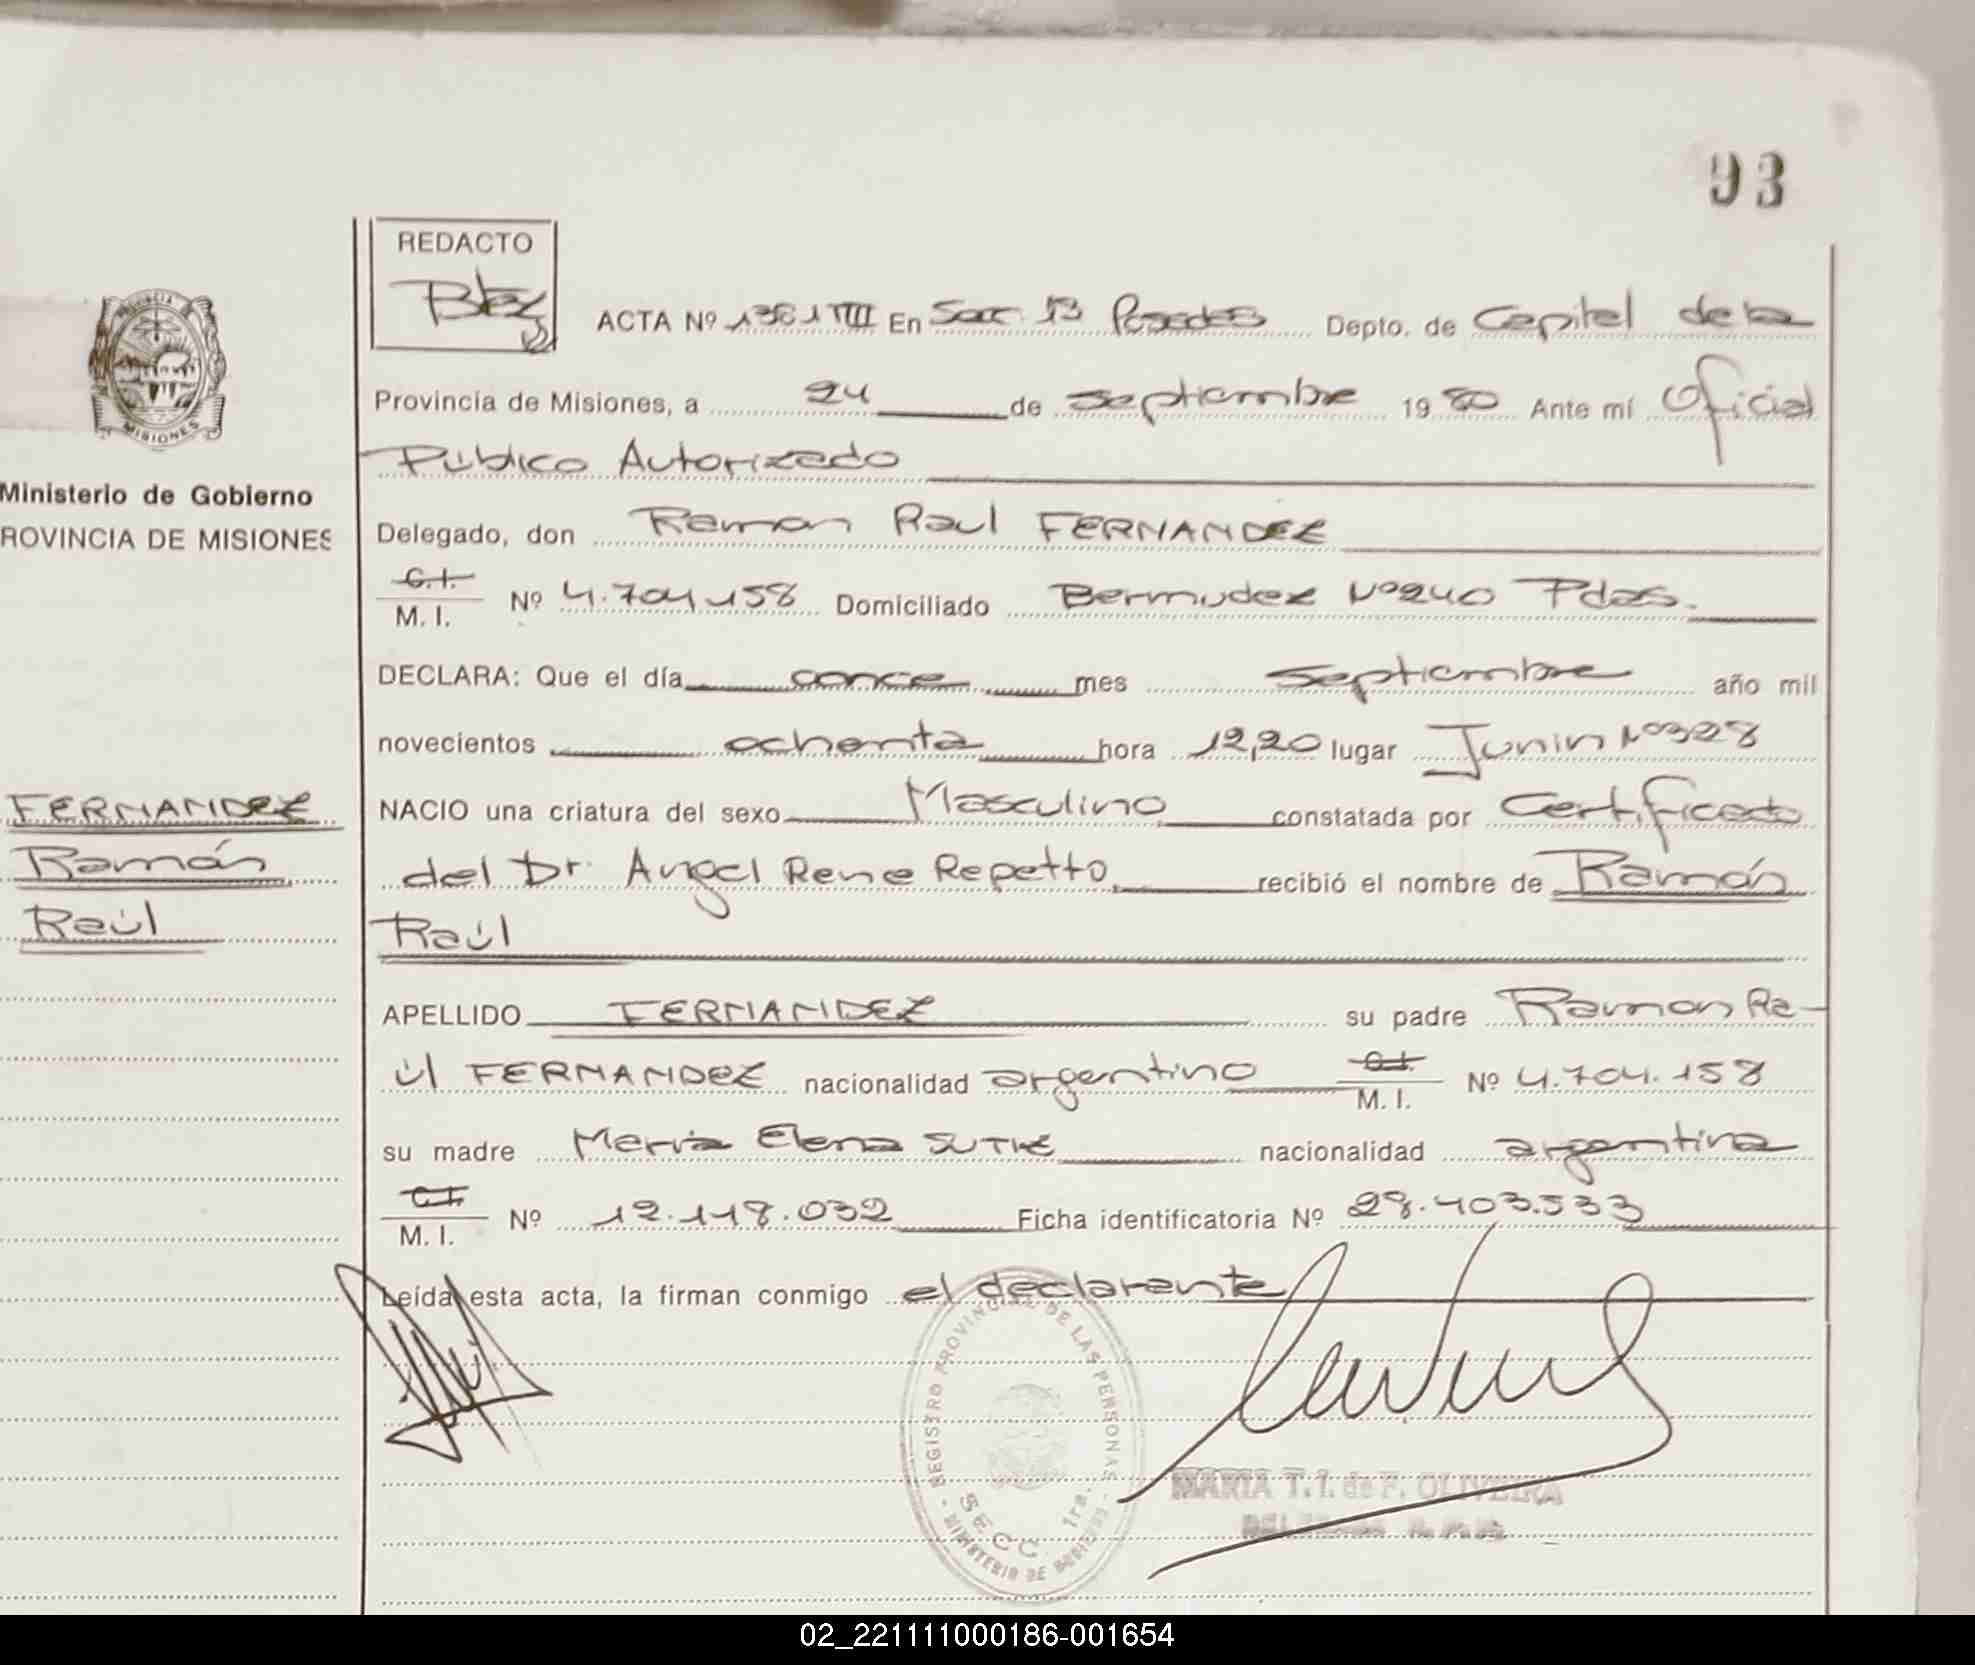 93
REDACTO
ACTA Nº 1361 VIII En Secc. 13 Posadas Depto. de Capital de la
Provincia de Misiones, a 24 de septiembre 1980 Ante mí Oficial
Público Autorizado
Ministerio de Gobierno
ROVINCIA DE MISIONES
Delegado, don Ramon Raul FERNANDEZ
C.I.
M. I. Nº 4.704.158 Domiciliado Bermudez Nº 240 Pdas.
DECLARA: Que el día once mes septiembre año mil
novecientos ochenta hora 12,20 lugar Junin Nº 328
FERNANDEZ
Ramón
Raúl
NACIO una criatura del sexo Masculino constatada por Certificado
del Dr. Angel Rene Repetto recibió el nombre de Ramón
Raúl
APELLIDO FERNANDEZ su padre Ramon Ra-
úl FERNANDEZ nacionalidad argentino C.I. M. I. Nº 4.704.158
su madre María Elena SUTIL nacionalidad argentina
C.I.
M. I. Nº 12.118.032 Ficha identificatoria Nº 28.403.533
Leída esta acta, la firman conmigo el declarante
REGISTRO PROVINCIAL DE LAS PERSONAS
SECC. 1ra.
MINISTERIO DE
MARIA T. I. de F. OLIVEIRA
02_221111000186-001654